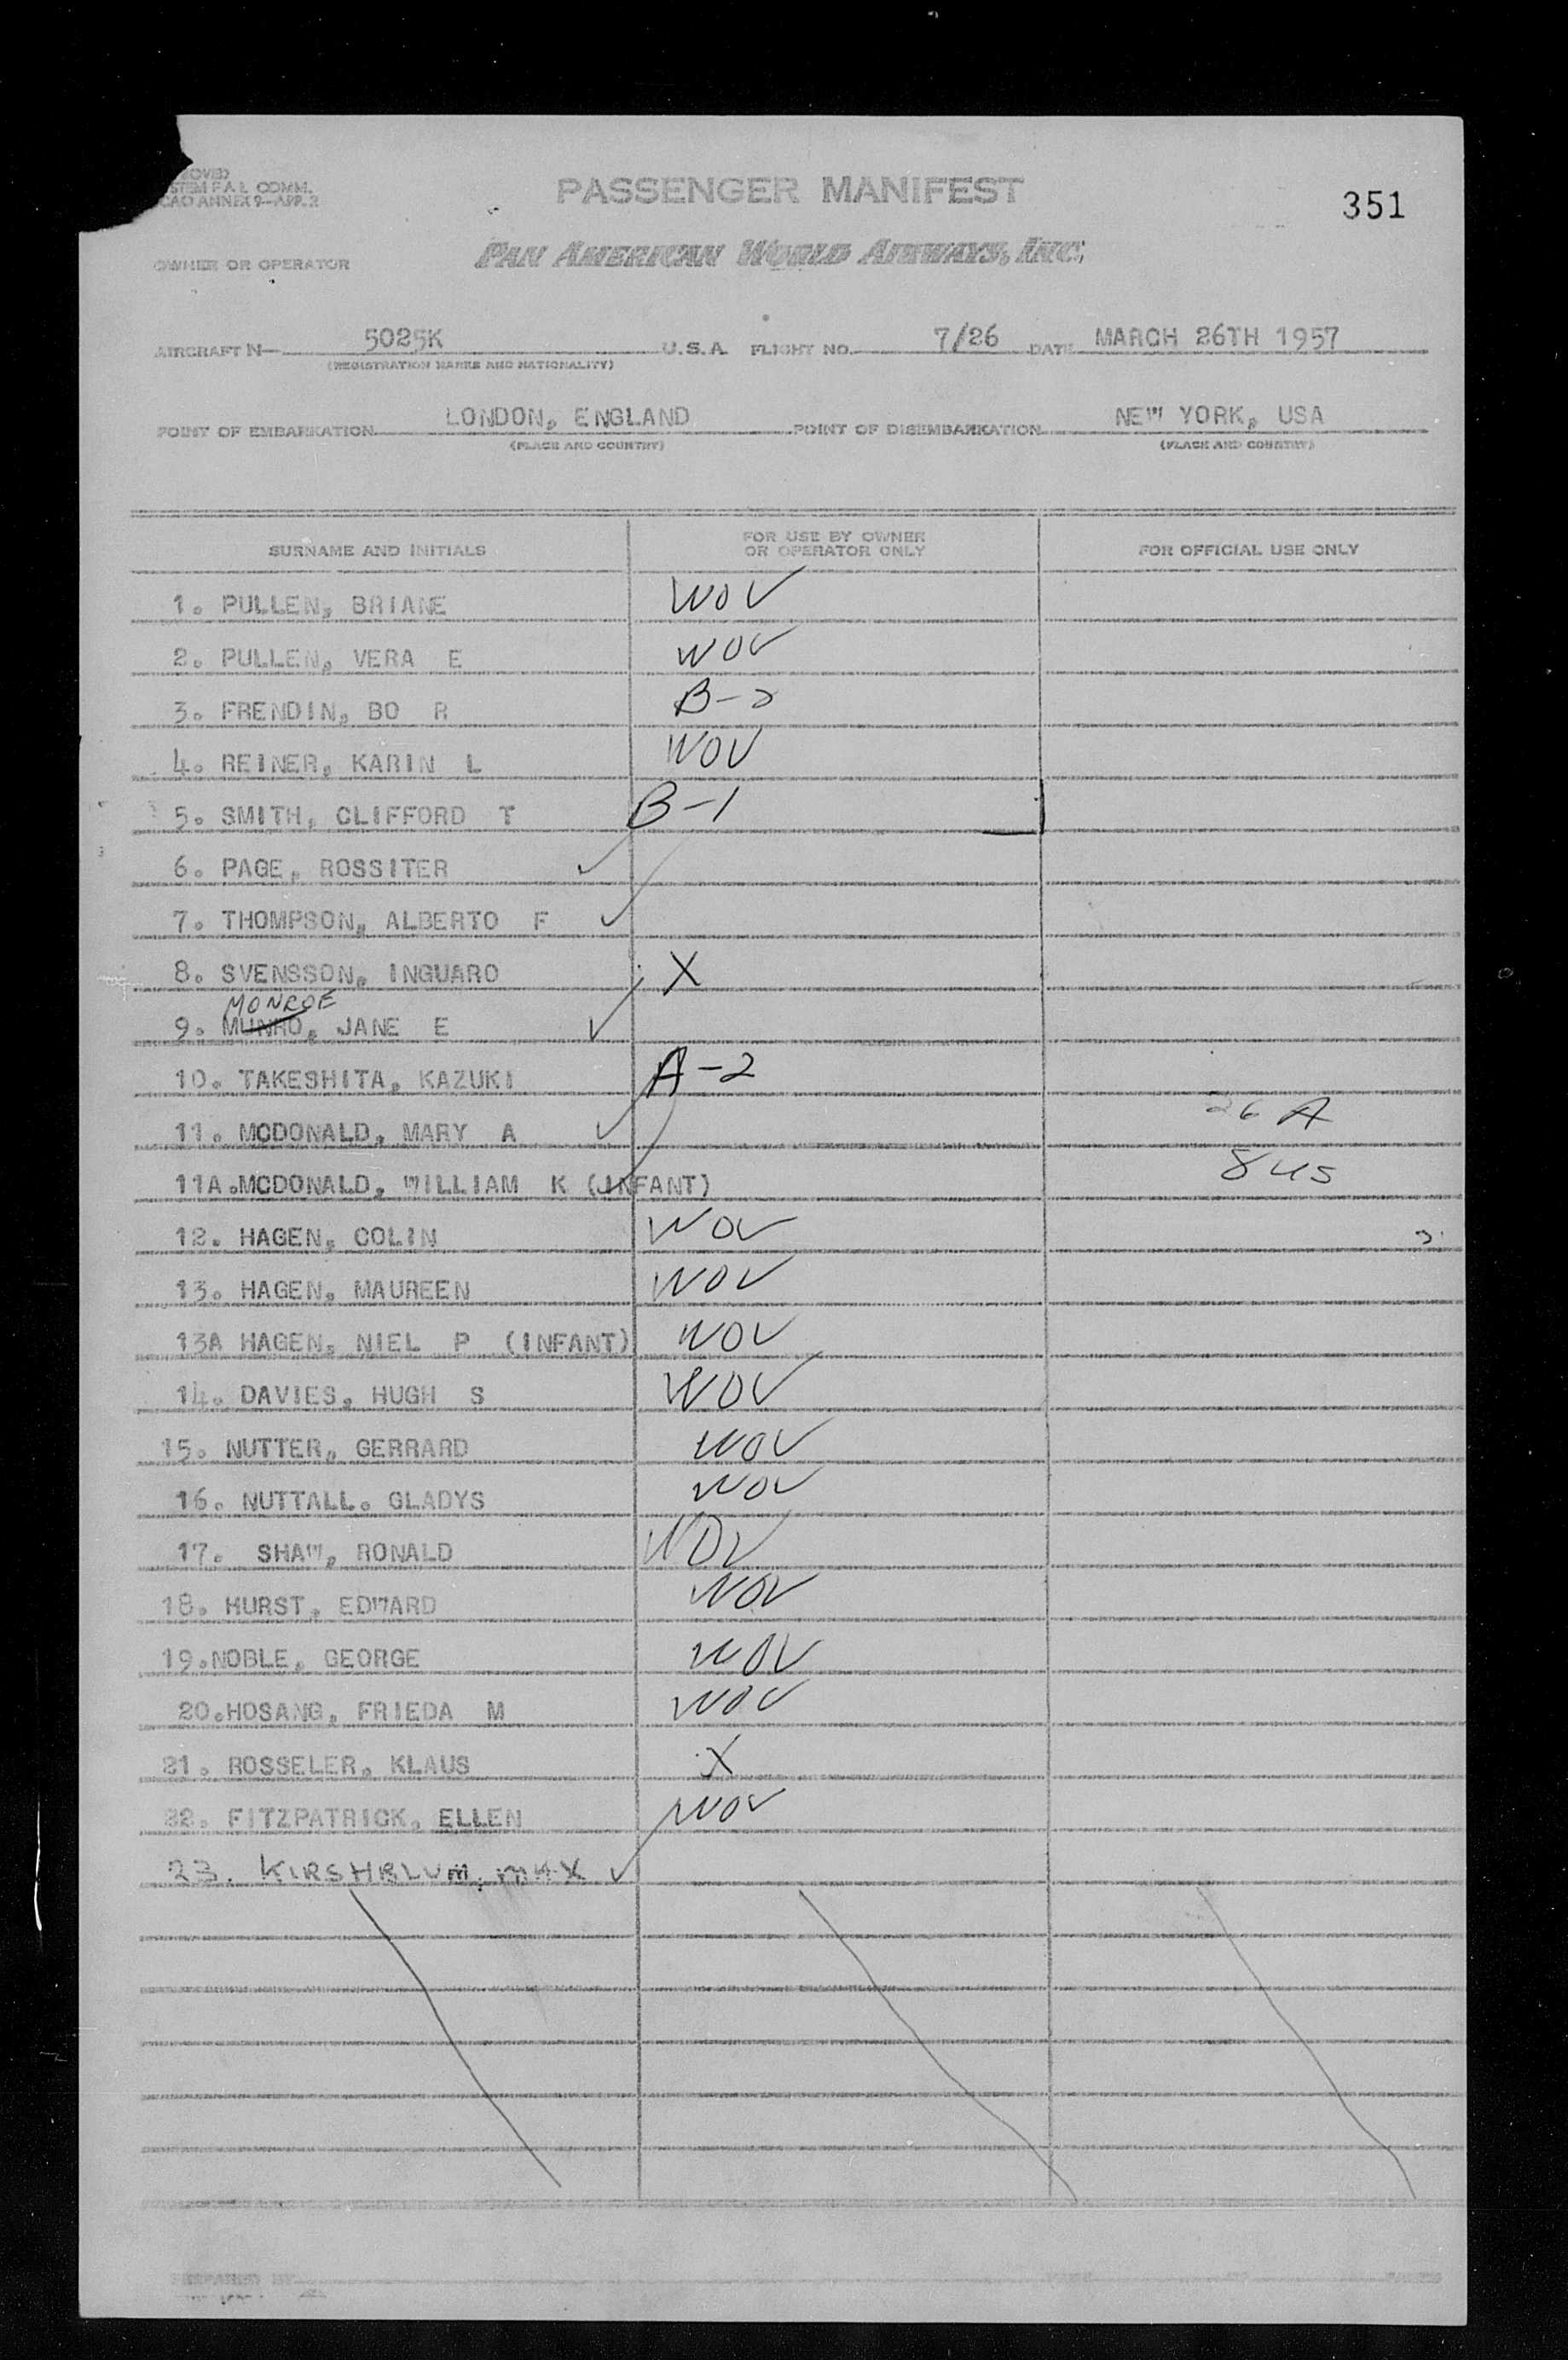 STEM F.A.L. COMM.
ICAO ANNEX 9—APP. 2
PASSENGER MANIFEST
351
PAN AMERICAN WORLD AIRWAYS, INC.
OWNER OR OPERATOR
AIRCRAFT N— 5025K U.S.A. FLIGHT NO. 7/26 DATE MARCH 26TH 1957
(REGISTRATION MARKS AND NATIONALITY)
POINT OF EMBARKATION LONDON, ENGLAND POINT OF DISEMBARKATION NEW YORK, USA
(PLACE AND COUNTRY) (PLACE AND COUNTRY)
SURNAME AND INITIALS FOR USE BY OWNER OR OPERATOR ONLY FOR OFFICIAL USE ONLY
1. PULLEN, BRIANE WOV
2. PULLEN, VERA E WOV
3. FRENDIN, BO R B-2
4. REINER, KARIN L WOV
5. SMITH, CLIFFORD T B-1
6. PAGE, ROSSITER ✓
7. THOMPSON, ALBERTO F ✓
8. SVENSSON, INGUARO X
MONROE
9. MUNRO, JANE E ✓
10. TAKESHITA, KAZUKI A-2
11. MCDONALD, MARY A ✓ 26 A
11A. MCDONALD, WILLIAM K (INFANT) 8 US
12. HAGEN, COLIN WOV
13. HAGEN, MAUREEN WOV
13A HAGEN, NIEL P (INFANT) WOV
14. DAVIES, HUGH S WOV
15. NUTTER, GERRARD WOV
16. NUTTALL. GLADYS WOV
17. SHAW, RONALD WOV
18. HURST, EDWARD WOV
19. NOBLE, GEORGE WOV
20. HOSANG, FRIEDA M WOV
21. ROSSELER, KLAUS X
22. FITZPATRICK, ELLEN WOV
23. KIRSHBLUM, MAX ✓
PREPARED BY